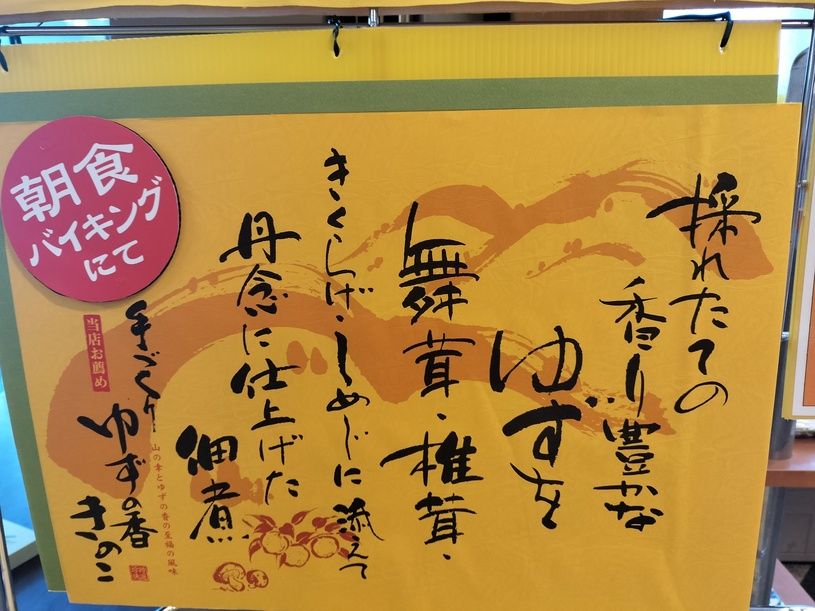 採れたての
香り豊かな
ゆずを
舞茸・椎茸・
きくらげ・しめじに添えて
丹念に仕上げた
佃煮
山の幸とゆずの香の至福の風味
手づくり
ゆずの香
きのこ
当店お薦め
朝食
バイキング
にて